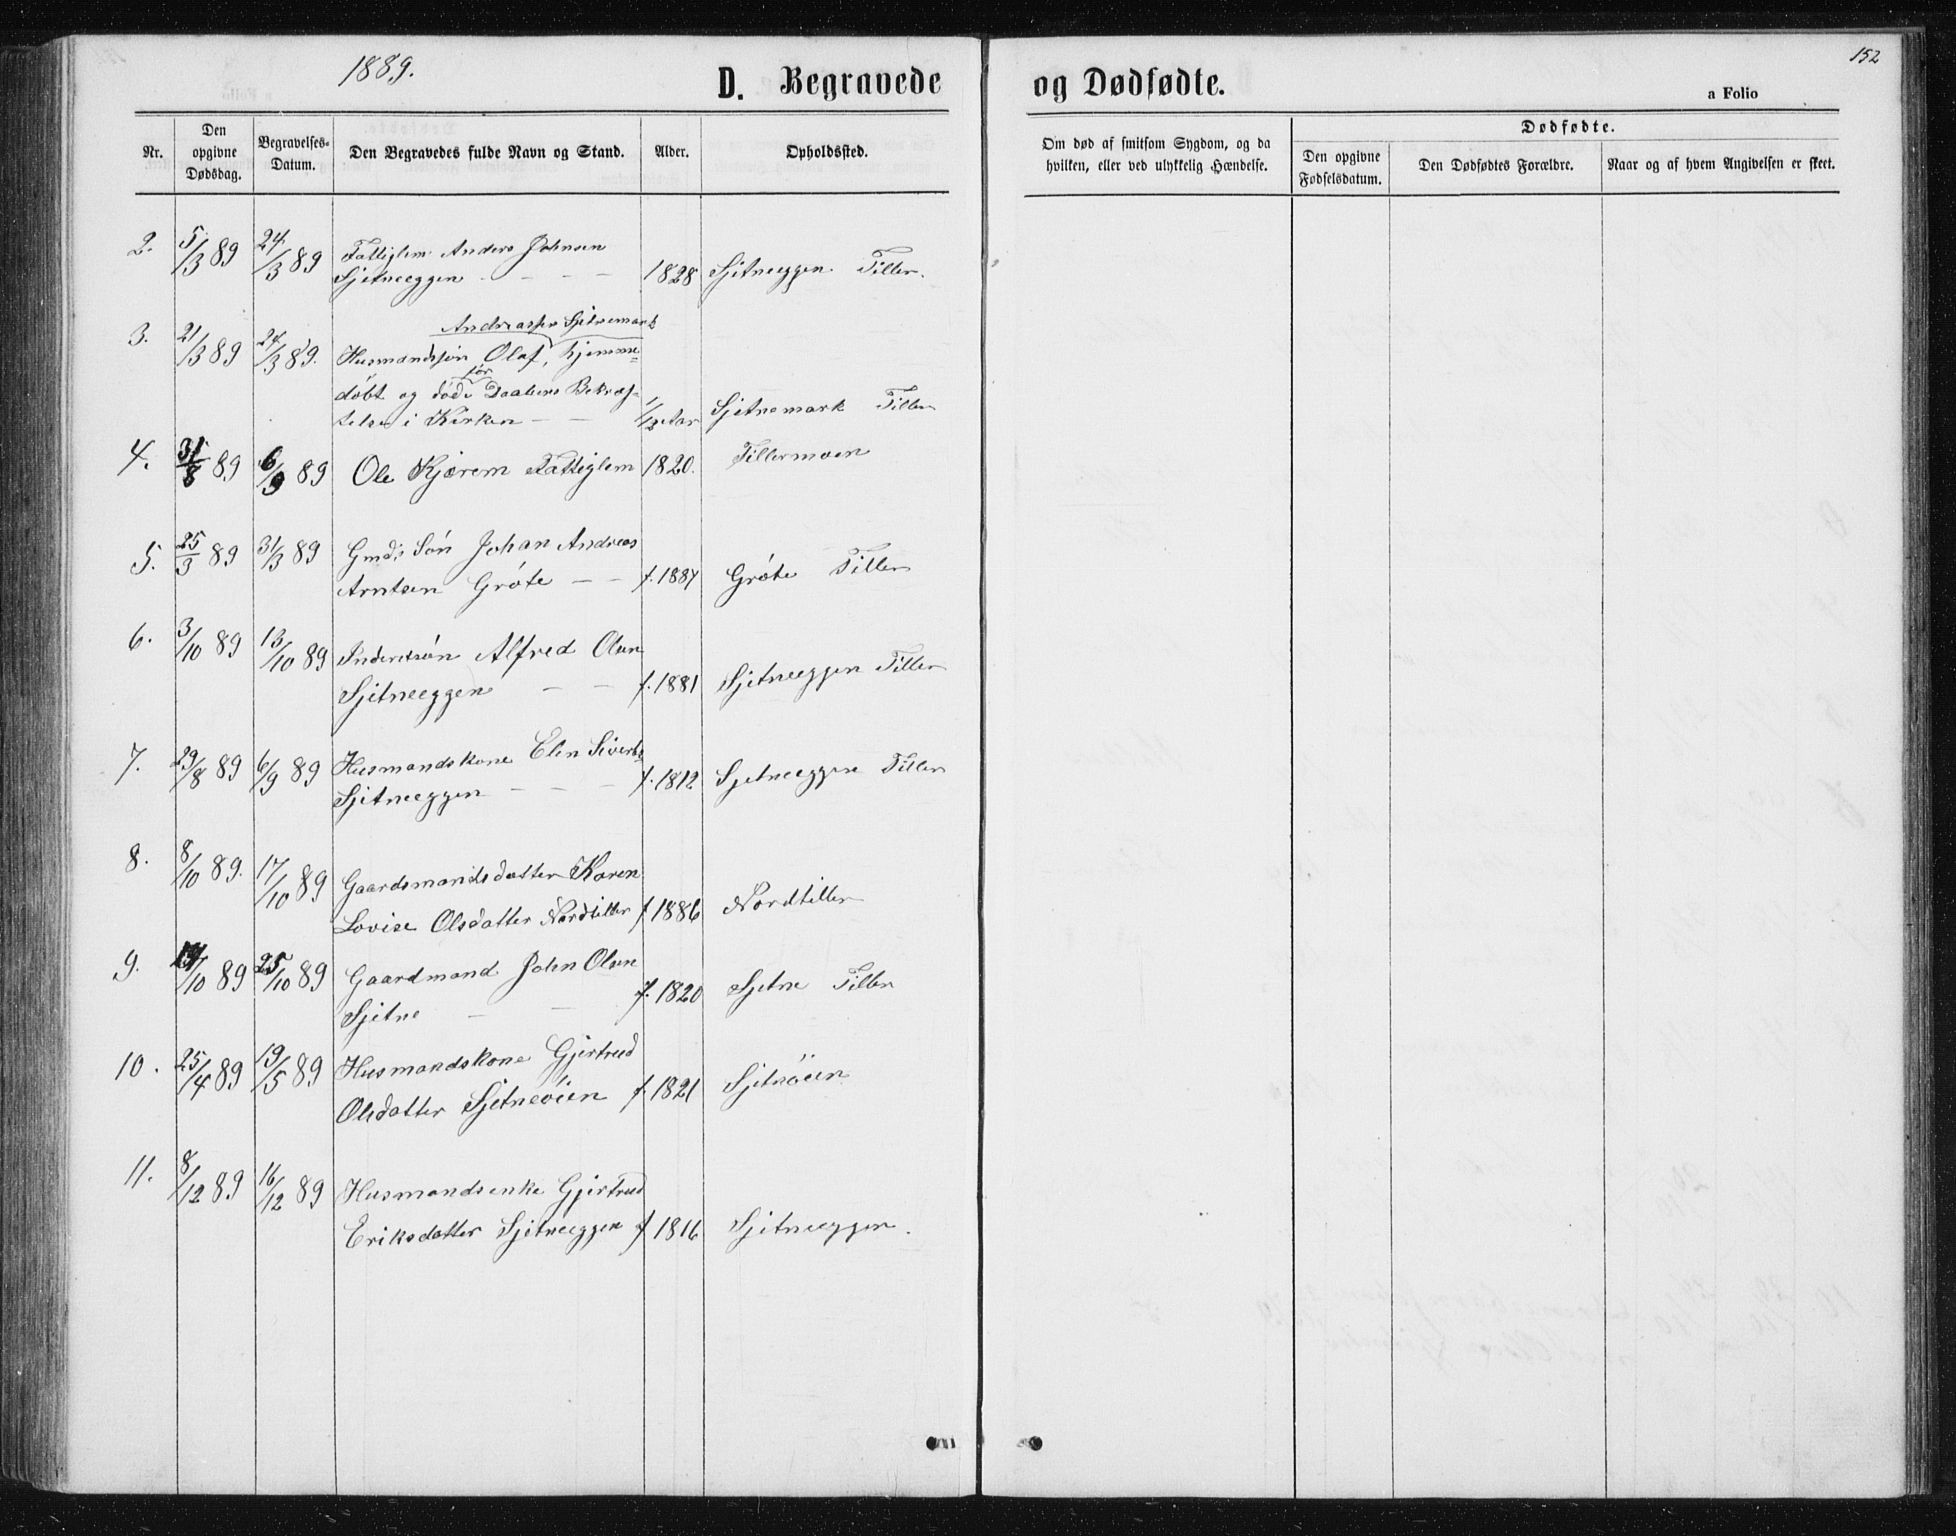 1889.
D. Begravede
og Dødfødte.
152
a Folio
Nr.
Den opgivne Dødsdag.
Begravelses-Datum.
Den Begravedes fulde Navn og Stand.
Alder.
Opholdssted.
Om død af smitsom Sygdom, og da hvilken, eller ved ulykkelig Hændelse.
Dødfødte.
Den opgivne Fødselsdatum.
Den Dødfødtes Forældre.
Naar og af hvem Angivelsen er skeet.
2. 5/3 89 24/3 89 Fattiglem Anders Johnsen
Sjetneeggen - - - 1828 Sjetneeggen Tiller.
3. 21/3 89 24/3 89. Andreassen Sjetnemark
Husmandssøn Olaf, hjemme=
døbt og døde før Daabens Bekræf-
telse i Kirken - - 1/12 Aar Sjetnemark Tiller
4. 31/8 89 6/9 89 Ole Kjærem Fattiglem 1820. Tillermoen
5. 25/3 89 31/3 89 Gmds Søn Johan Andreas
Arntsen Gröte - - f. 1887 Gröte Tiller
6. 3/10 89 13/10 89 Inderstsøn Alfred Olsen
Sjetneeggen - - f. 1881 Sjetneeggen Tiller
7. 29/8 89 6/9 89 Husmandskone Elen Siverts
Sjetneeggen - - - f. 1812 Sjetneeggen Tiller
8. 8/10 89. 17/10 89 Gaardsmandsdatter Karen
Lovise Olsdatter Nordtiller f 1886 Nordtiller
9. /10 89 25/10 89 Gaardmand John Olsen
Sjetne - - f. 1820 Sjetne Tiller
10. 25/4 89 19/5 89 Husmandskone Gjertrud
Olsdatter Sjetneöien f. 1821 Sjetnöien
11. 8/12 89 16/12 89 Husmandsenke Gjertrud
Eriksdatter Sjetneeggen f 1816 Sjetneeggen.